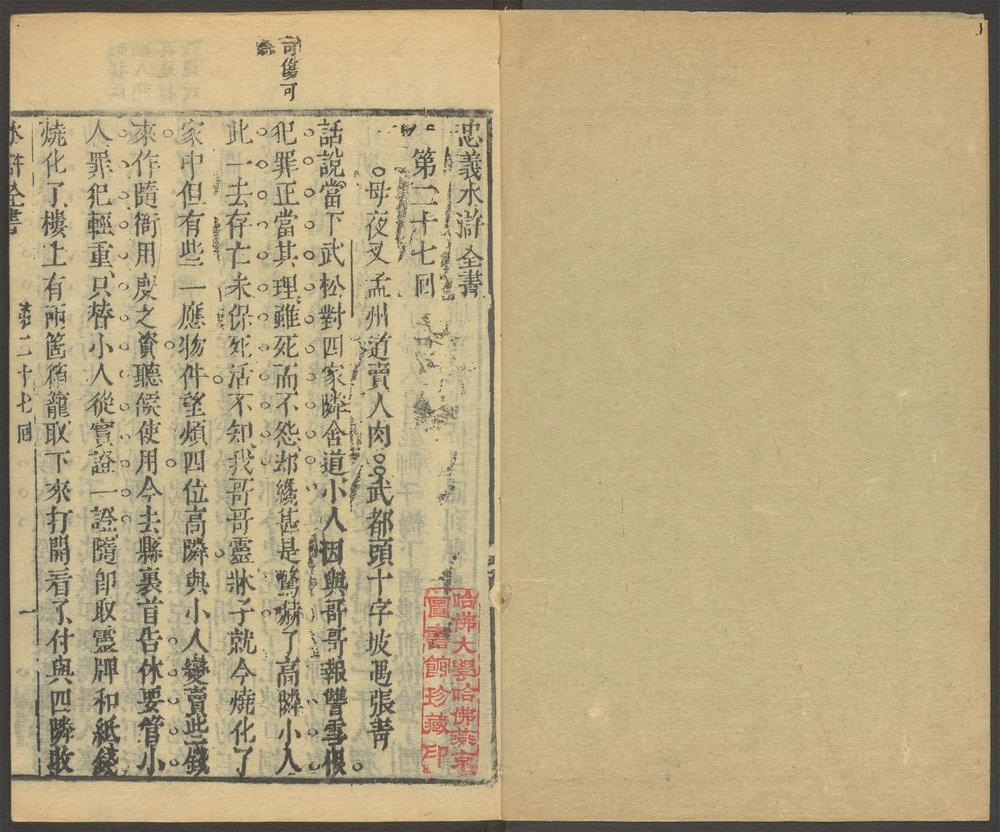 忠義水滸全書
第二十七回
母夜叉孟州道賣人肉 武都頭十字坡遇張青
話說當下武松對四家鄰舍道小人因與哥哥報讐雪恨
犯罪正當其理雖死而不怨却纔甚是驚嚇了高隣小人
此一去存亡未保死活不知我哥哥靈牀子就今燒化了
家中但有些一應物件望煩四位高隣與小人變賣些錢
來作隨衙用度之資聽候使用今去縣裏首告休要管小
人罪犯輕重只替小人從實證一證隨卽取靈牌和紙錢
燒化了樓上有兩箇箱籠取下來打開看了付與四隣收
水滸全書
第二十七回
一
可傷可
哈佛大學哈佛燕京
圖書館珍藏印